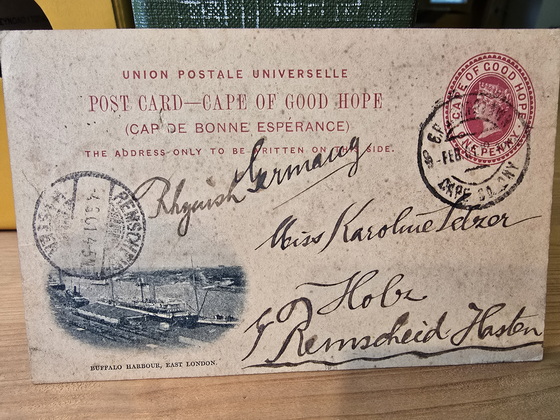 UNION POSTALE UNIVERSELLE
POST CARD—CAPE OF GOOD HOPE
(CAP DE BONNE ESPÉRANCE)
THE ADDRESS ONLY TO BE WRITTEN ON THIS SIDE.
CAPE OF GOOD HOPE
ONE PENNY
FEB
CAPE COLONY
Germany
Rhynish
REMSCHEID
Miss Karoline Telzer
Holz
Remscheid Hasten
BUFFALO HARBOUR, EAST LONDON.